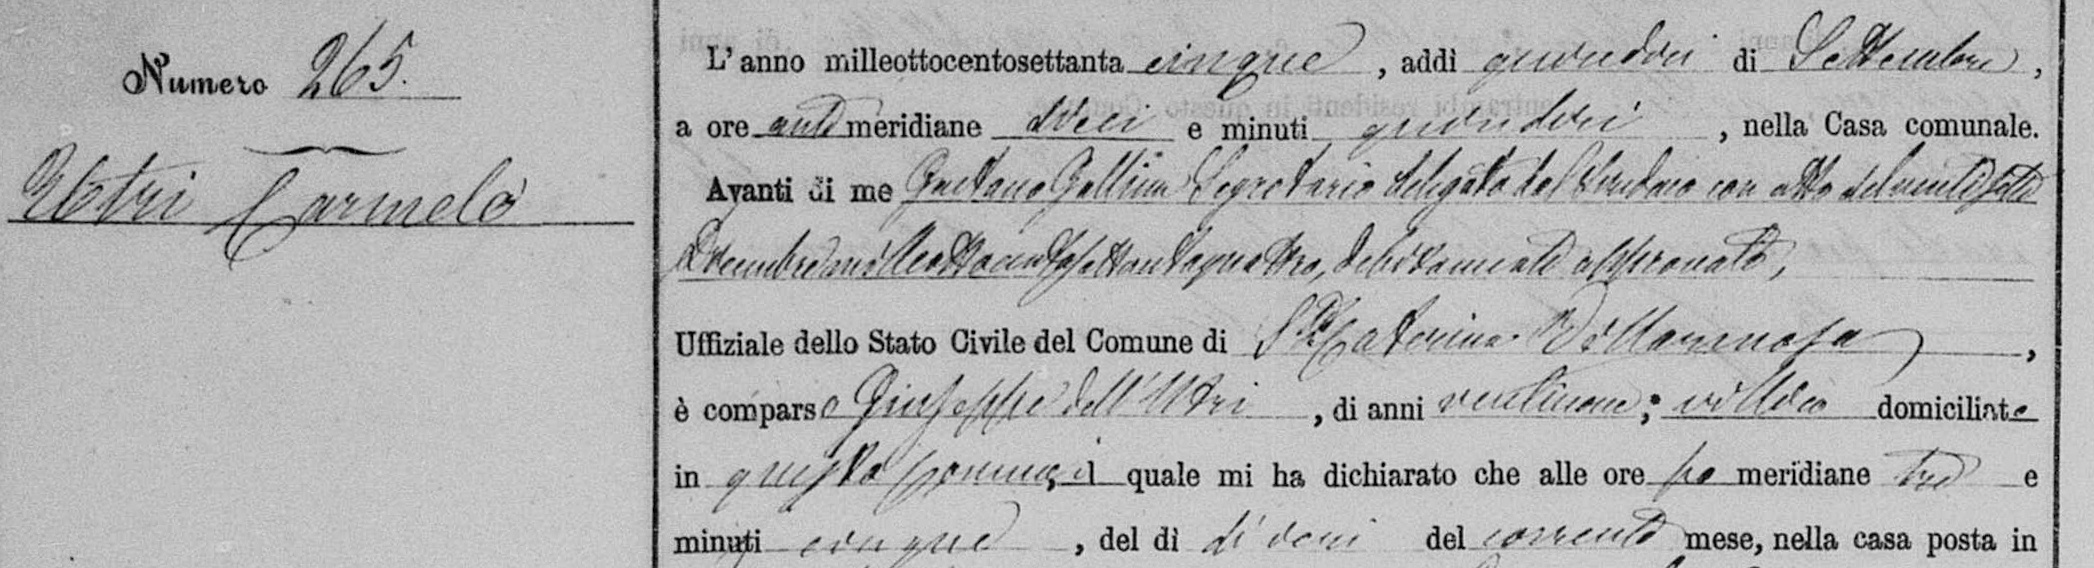 Numero 265.
Utri Carmelo
L' anno milleottocentosettanta cinque, addì quindici di Settembre,
a ore anti meridiane dieci e minuti quindici, nella Casa comunale.
Avanti di me Gaetano Segretario delegato dal Sindaco con atto del ventisette
Dicembre milleottocentosettantaquattro, debitamente approvato,
Uffiziale dello Stato Civile del Comune di S.ta Caterina Villarmosa,
è comparso Giuseppe dell'Utri, di anni ventinove, villico domiciliato
in questo Comune, il quale mi ha dichiarato che alle ore po meridiane tre e
minuti cinque, del dì del corrente mese, nella casa posta in